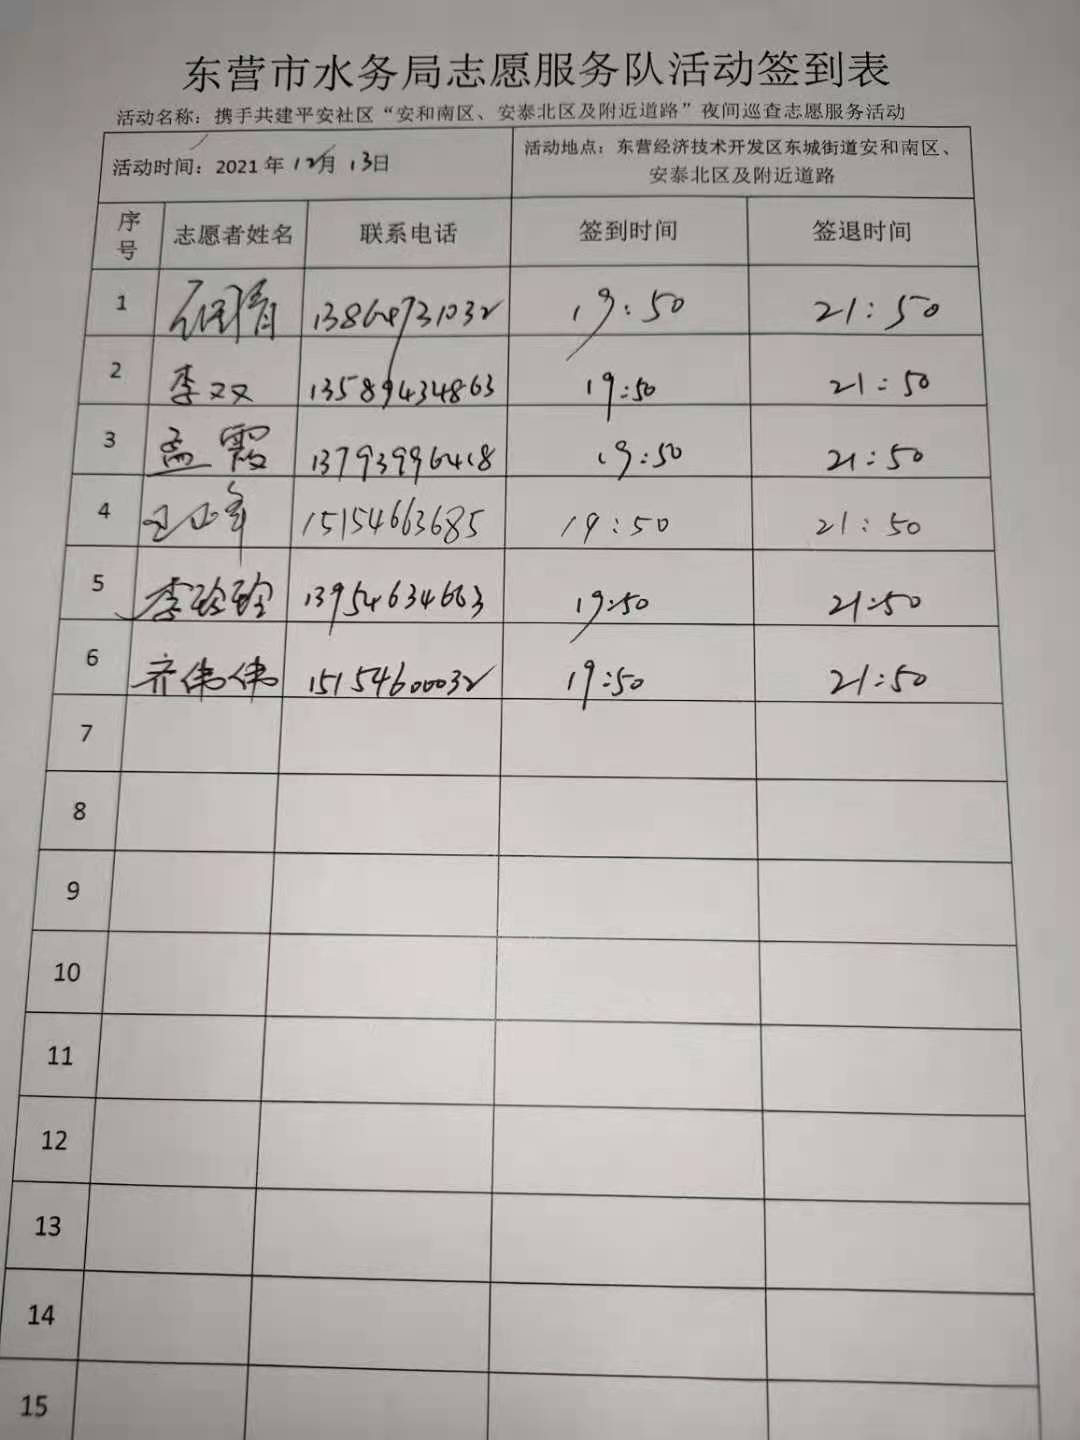 东营市水务局志愿服务队活动签到表
活动名称：携手共建平安社区“安和南区、安泰北区及附近道路”夜间巡查志愿服务活动
活动时间：2021年12月13日 活动地点：东营经济技术开发区东城街道安和南区、
安泰北区及附近道路
序号 志愿者姓名 联系电话 签到时间 签退时间
1 13864731032 19:50 21:50
2 李双 13589434863 19:50 21:50
3 孟霞 13793996418 19:50 21:50
4 15154663685 19:50 21:50
5 李玲玲 13954634663 19:50 21:50
6 齐伟伟 15154600032 19:50 21:50
7
8
9
10
11
12
13
14
15